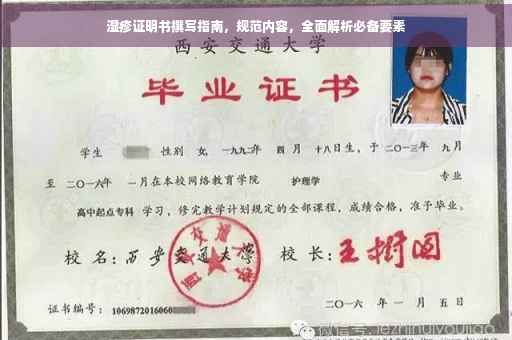 湿疹证明书撰写指南，规范内容，全面解析必备要素
西安交通大学
毕业证书
学生 性别 女，一九九二年 四 月 十八日生，于 二〇一三年 九月
至 二〇一六年 一月在本校网络教育学院 护理学 专业
高中起点专科 学习，修完教学计划规定的全部课程，成绩合格，准予毕业。
校 名：西安交通大学 校 长：王树国
西安交通大学
证书编号：1069872016060
二〇一六 年 一 月 五 日
微信号：jiezhinuiyoujiao